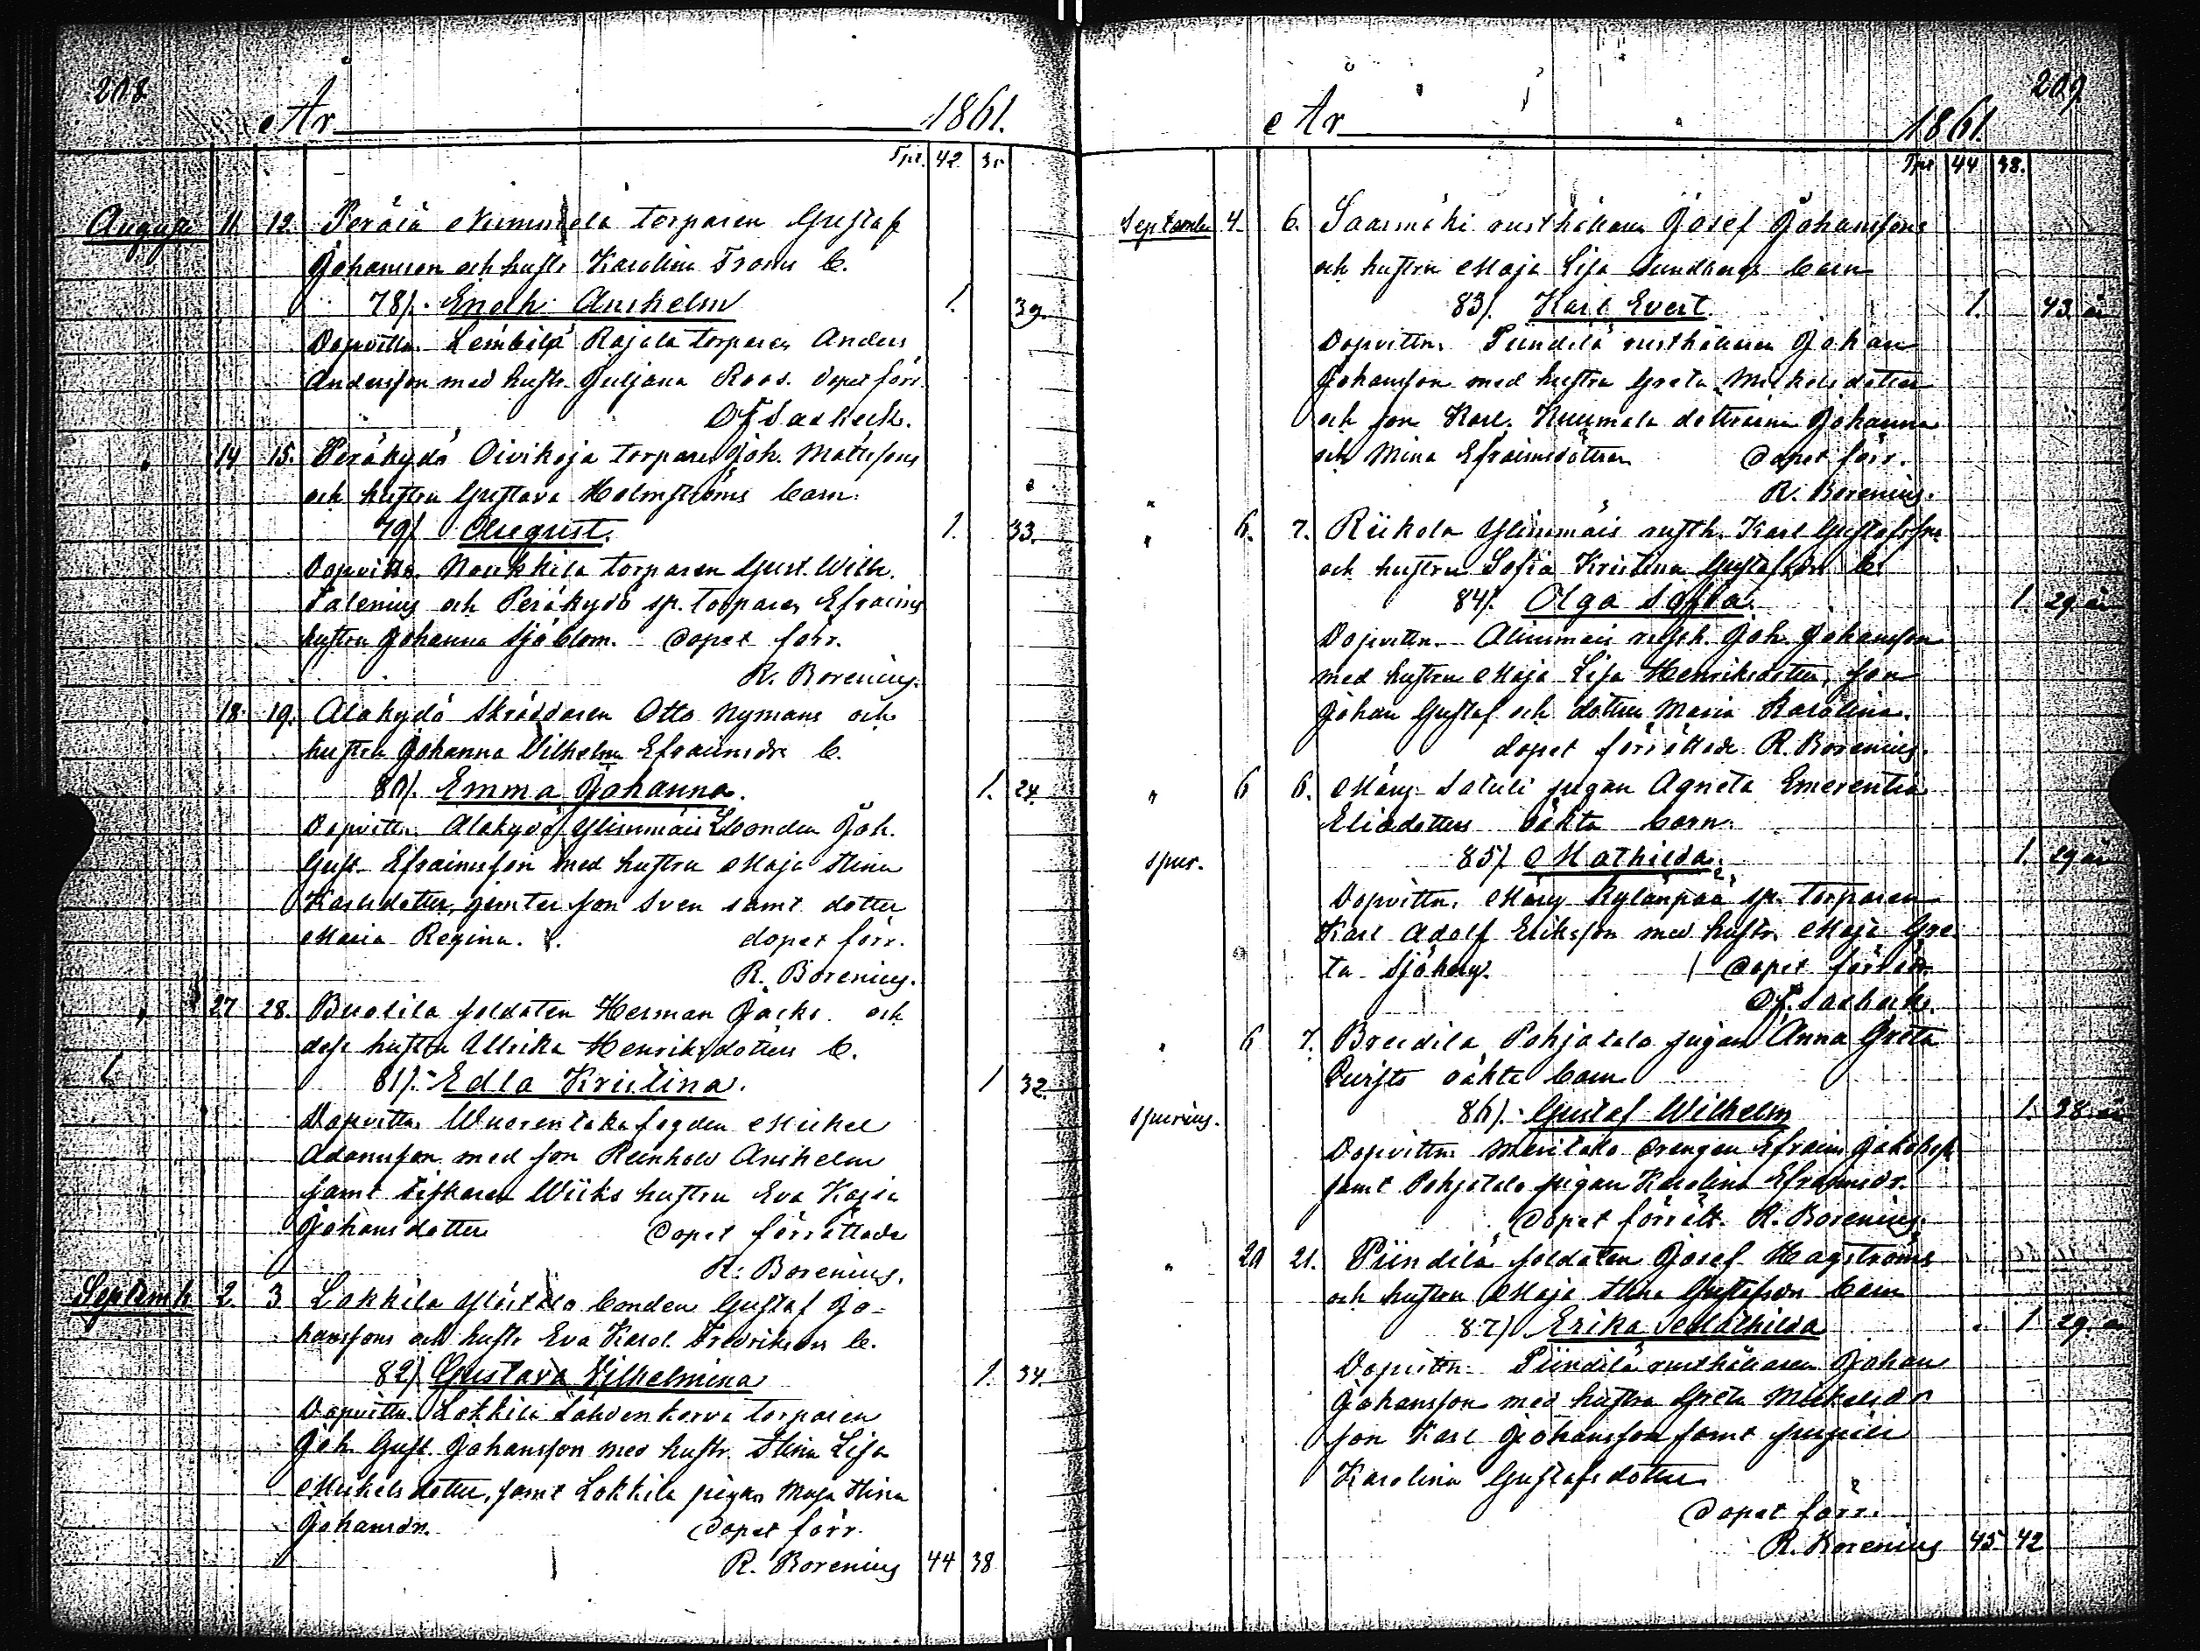 208
År 1861.
Tpt. 42 35
August 11 12. Peräsä Nummela torparen Gustaf
Johansson och hustr. Karolina Froms b.
78). Enoch Anshelm 1. 39.
Dopvittn. Leinbilä Rajala torparen Anders
Andersson med hustr. Juljana Roos. dopet förr.
O. F. Saxbeck.
" 14 15. Peräkydö Oivikoja torparen Joh. Matssons
och hustru Gustava Holmströms barn.
79) August. 1. 33.
Dopvittn. Noukkila torparen Gust. Wilh.
Salenius och Peräkydö sp. torparen Efraims
hustru Johanna Sjöblom. Dopet förr.
R. Borenius.
" 18 19. Alakydö Skräddaren Otto Nymans och
hustru Johanna Vilhelm Efraimsdr. b.
80). Emma Johanna. 1. 24.
Dopvittn. Alakydö Ylismäis bonden Joh.
Gust. Efraimsson med hustru Maja Stina
Karlsdotter, jemte son Sven samt dotter
Maria Regina. dopet förr.
R. Borenius.
" 27 28. Buolila soldaten Herman Jacks och
dess hustru Ullrika Henriksdotters b.
81). Edla Kristina. 1 32.
Dopvittn. Wuorentaka fogden Mickel
Adamsson med son Reinhold Anshelm
samt fiskaren Wiiks hustru Eva Kajsa
Johansdotter Dopet förrättade
R. Borenius.
Septemb. 2. 3 Lokkila Ylöstalo bonden Gustaf Jo-
hanssons och hustr. Eva Karol. Fredriksdrs b.
82) Gustava Vilhelmina 1. 34
Dopvittn. Lokkila Lahdenkorva torparen
Joh. Gust. Johansson med hustr. Stina Lisa
Mickelsdotter, samt Lokkila pigan Maja Stina
Johansdr. Dopet förr.
R. Borenius 44 38
209
År 1861.
Tpt 44 38.
September 4. 6. Saarmäki rusthållaren Josef Johanssons
och hustru Maja Lisa Sundbergs barn
83). Karl Evert. 1. 43 år
Dopvittn. Piindilä rusthållaren Johan
Johansson med hustru Greta Mickelsdotter
och son Karl. Kuumola döttrarna Johanna
och Mina Efraimsdöttrar Dopet förr.
R. Borenius.
" 6. 7. Riikola Ylismäis rusth. Karl Gustafsson
och hustru Sofia Kristina Gustafsdrs b.
84). Olga Sofia. 1 29 år
Dopvittn. Alismäis rusth. Joh. Johansson
med hustru Maja Lisa Henriksdotter, son
Johan Gustaf och dotter Maria Karolina.
dopet förrättade R. Borenius.
" 6 6. Märy Saluli pigan Agneta Emerentia
Eliædotters oäkta barn.
spur. 85). Mathilda. 1. 29 år
Dopvittn. Märy Kylänpää sp. torparen
Karl Adolf Eriksson med hustr. Maja Gre-
ta Sjöberg. Dopet förrätt.
O. F. Saxbeck.
" 6 7. Breidilä Pohjatalo pigan Anna Greta
Quists oäkta barn
spurius. 86). Gustaf Wilhelm 1. 38 år
Dopvittn. Männitalo drengen Efraim Jakobss.
samt Pohjatalo pigan Karolina Efraimsdr.
Dopet förrätt. R. Borenius.
" 20 21. Piindilä soldaten Josef Hagströms
och hustru Maja Stina Gustafsdrs barn
87) Erika Mathilda 1 29. år
Dopvittn. Piindilä rusthållaren Johan
Johansson med hustru Greta Mickelsdr
son Karl Johansson samt pupill
Karolina Gustafsdotter
Dopet förr.
R. Borenius 45 42